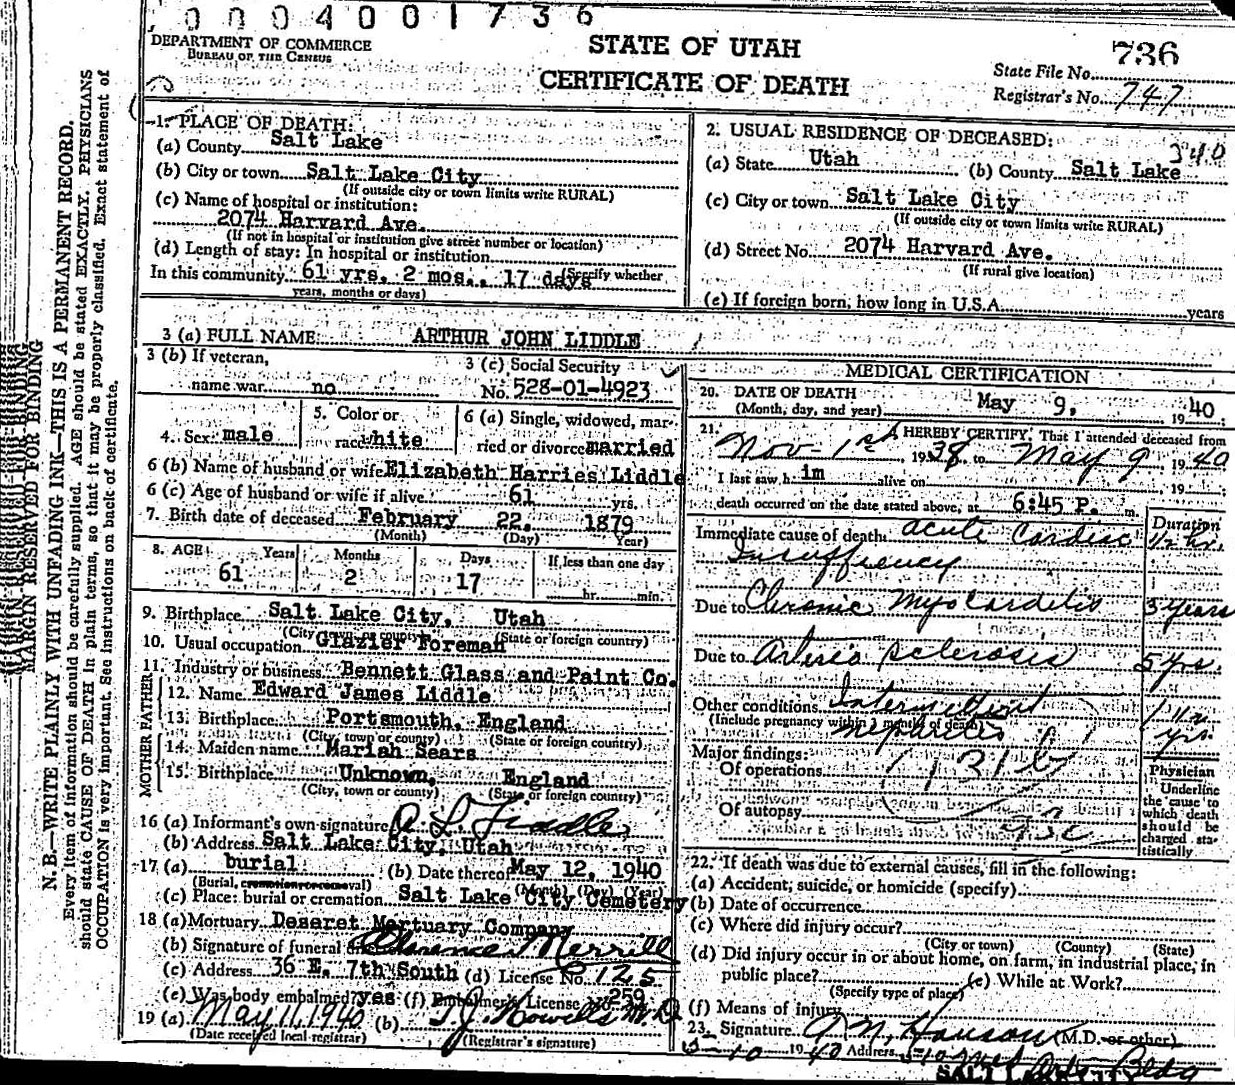 0004001736
DEPARTMENT OF COMMERCE
BUREAU OF THE CENSUS
STATE OF UTAH
CERTIFICATE OF DEATH
736
State File No.
Registrar's No. 747
MARGIN RESERVED FOR BINDING
N. B.—WRITE PLAINLY WITH UNFADING INK—THIS IS A PERMANENT RECORD.
Every item of information should be carefully supplied. AGE should be stated EXACTLY. PHYSICIANS
should state CAUSE OF DEATH in plain terms, so that it may be properly classified. Exact statement of
OCCUPATION is very important. See instructions on back of certificate.
1. PLACE OF DEATH:
(a) County Salt Lake
(b) City or town Salt Lake City
(If outside city or town limits write RURAL)
(c) Name of hospital or institution:
2074 Harvard Ave.
(If not in hospital or institution give street number or location)
(d) Length of stay: In hospital or institution
In this community 61 yrs. 2 mos., 17 days (Specify whether
years, months or days)
2. USUAL RESIDENCE OF DECEASED:
(a) State Utah (b) County Salt Lake
(c) City or town Salt Lake City
(If outside city or town limits write RURAL)
(d) Street No. 2074 Harvard Ave.
(If rural give location)
(e) If foreign born, how long in U.S.A. years
3 (a) FULL NAME ARTHUR JOHN LIDDLE
3 (b) If veteran,
name war no
3 (c) Social Security
No. 528-01-4923
4. Sex male
5. Color or
race white
6 (a) Single, widowed, mar-
ried or divorced married
6 (b) Name of husband or wife Elizabeth Harries Liddle
6 (c) Age of husband or wife if alive 61 yrs.
7. Birth date of deceased February 22, 1879
(Month) (Day) Year)
8. AGE Years Months Days If less than one day
61 2 17 hr. min.
9. Birthplace Salt Lake City, Utah
(City town or county) (State or foreign country)
10. Usual occupation Glazier Foreman
11. Industry or business Bennett Glass and Paint Co.
FATHER
12. Name Edward James Liddle
13. Birthplace Portsmouth, England
(City, town or county) (State or foreign country)
MOTHER
14. Maiden name Mariah Sears
15. Birthplace Unknown, England
(City, town or county) (State or foreign country)
16 (a) Informant's own signature
(b) Address Salt Lake City, Utah
17 (a) burial (b) Date thereof May 12, 1940
(Burial, cremation or removal) (Month) (Day) (Year)
(c) Place: burial or cremation Salt Lake City Cemetery
18 (a) Mortuary Deseret Mortuary Company
(b) Signature of funeral Clarence Merrill
(c) Address 36 E. 7th South (d) License No. 125
(e) Was body embalmed? yes (f) Embalmer's License No. 259
19 (a) May 11, 1940 (b) T.J. Howells M.D.
(Date received local registrar) (Registrar's signature)
MEDICAL CERTIFICATION
20. DATE OF DEATH
(Month, day, and year) May 9, 1940
21. I HEREBY CERTIFY, That I attended deceased from
Nov-1st 1938 to May 9 1940
I last saw him alive on , 19
death occurred on the date stated above, at 6:45 P. m.
Duration
Immediate cause of death acute Cardiac 1/2 hr.
Insufficency
Due to Chronic Myocarditis 3 years
Due to Arterio sclerosis 5 yrs.
Other conditions Intermittent
(Include pregnancy within 3 months of death)
Nephritis yrs.
Major findings:
Of operations 131b
Of autopsy 93c
Physician
Underline
the cause to
which death
should be
charged sta-
tistically
22. If death was due to external causes, fill in the following:
(a) Accident, suicide, or homicide (specify)
(b) Date of occurrence
(c) Where did injury occur?
(City or town) (County) (State)
(d) Did injury occur in or about home, on farm, in industrial place, in
public place? (e) While at Work?
(Specify type of place)
(f) Means of injury
23. Signature (M.D. or other)
5-10 1940 Address Arts Bldg